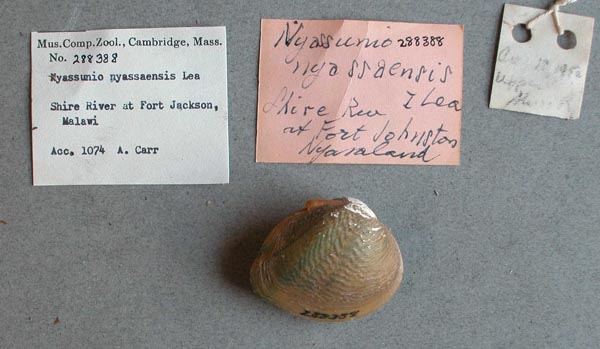 Mus.Comp.Zool., Cambridge, Mass.
No. 288388
Nyassunio nyassaensis Lea
Shire River at Fort Jackson,
Malawi
Acc. 1074 A. Carr
Nyassunio 288388
nyassaensis
I Lea
Shire River
at Fort Johnston
Nyasaland
288388